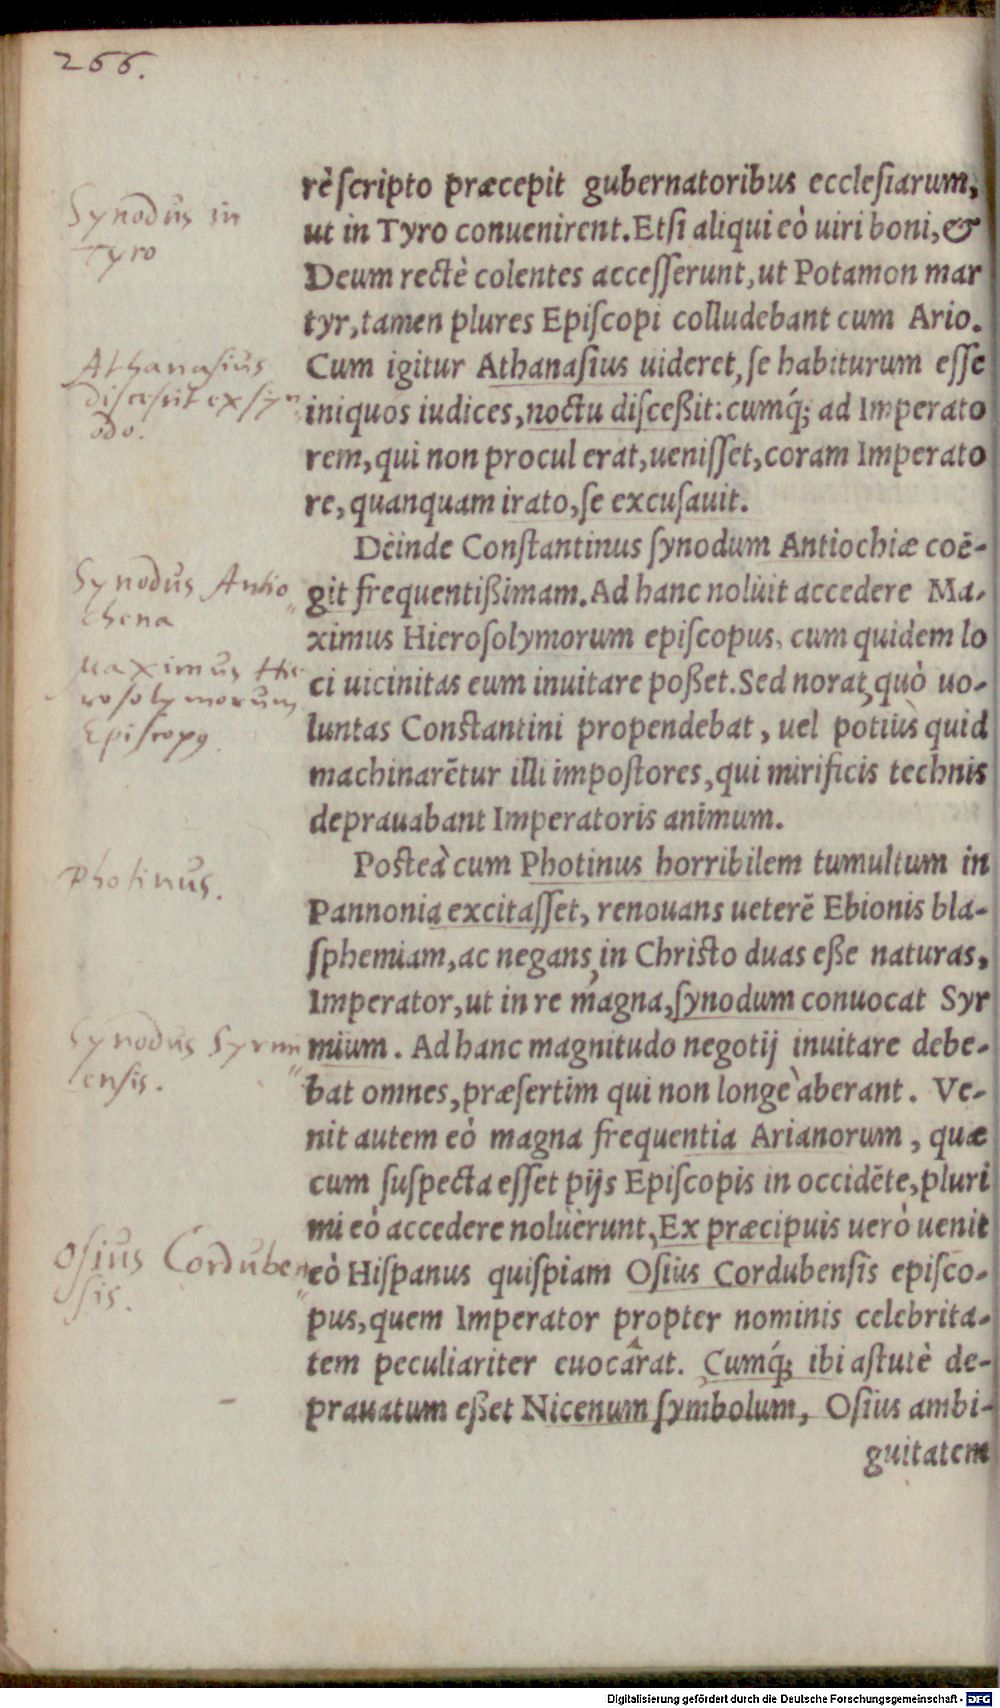 266.
Synodus in
Tyro
Athanasius
discessit ex syn
odo.
Synodus Antio
chena
Maximus Hie
rosolymorum
Episcopꝰ
Photinus.
Synodus Syrmi
ensis.
Osius Corduben
sis.
rè scripto præcepit gubernatoribus ecclesiarum,
ut in Tyro conuenirent. Etsi aliqui eò uiri boni, &
Deum rectè colentes accesserunt, ut Potamon mar
tyr, tamen plures Episcopi colludebant cum Ario.
Cum igitur Athanasius uideret, se habiturum esse
iniquos iudices, noctu disceßit: cumq́; ad Imperato
rem, qui non procul erat, uenisset, coram Imperato
re, quanquam irato, se excusauit.
Dèinde Constantinus synodum Antiochiæ coē-
git frequentißimam. Ad hanc noluit accedere Ma-
ximus Hierosolymorum episcopus, cum quidem lo
ci uicinitas eum inuitare poßet. Sed norat, quò uo-
luntas Constantini propendebat, uel potius quid
machinarētur illi impostores, qui mirificis technis
deprauabant Imperatoris animum.
Posteà cum Photinus horribilem tumultum in
Pannonia excitasset, renouans ueterē Ebionis bla-
sphemiam, ac negans, in Christo duas eße naturas,
Imperator, ut in re magna, synodum conuocat Syr
mium. Ad hanc magnitudo negotij inuitare debe-
bat omnes, præsertim qui non longè aberant. Ve-
nit autem eò magna frequentia Arianorum, quæ
cum suspecta esset pijs Episcopis in occidēte, pluri
mi eò accedere noluèrunt, Ex præcipuis uerò uenit
eò Hispanus quispiam Osius Cordubensis episco-
pus, quem Imperator propter nominis celebrita-
tem peculiariter euocârat. Cumq́; ibi astutè de-
prauatum eßet Nicenum symbolum, Osius ambi-
guitatem
Digitalisierung gefördert durch die Deutsche Forschungsgemeinschaft - DFG